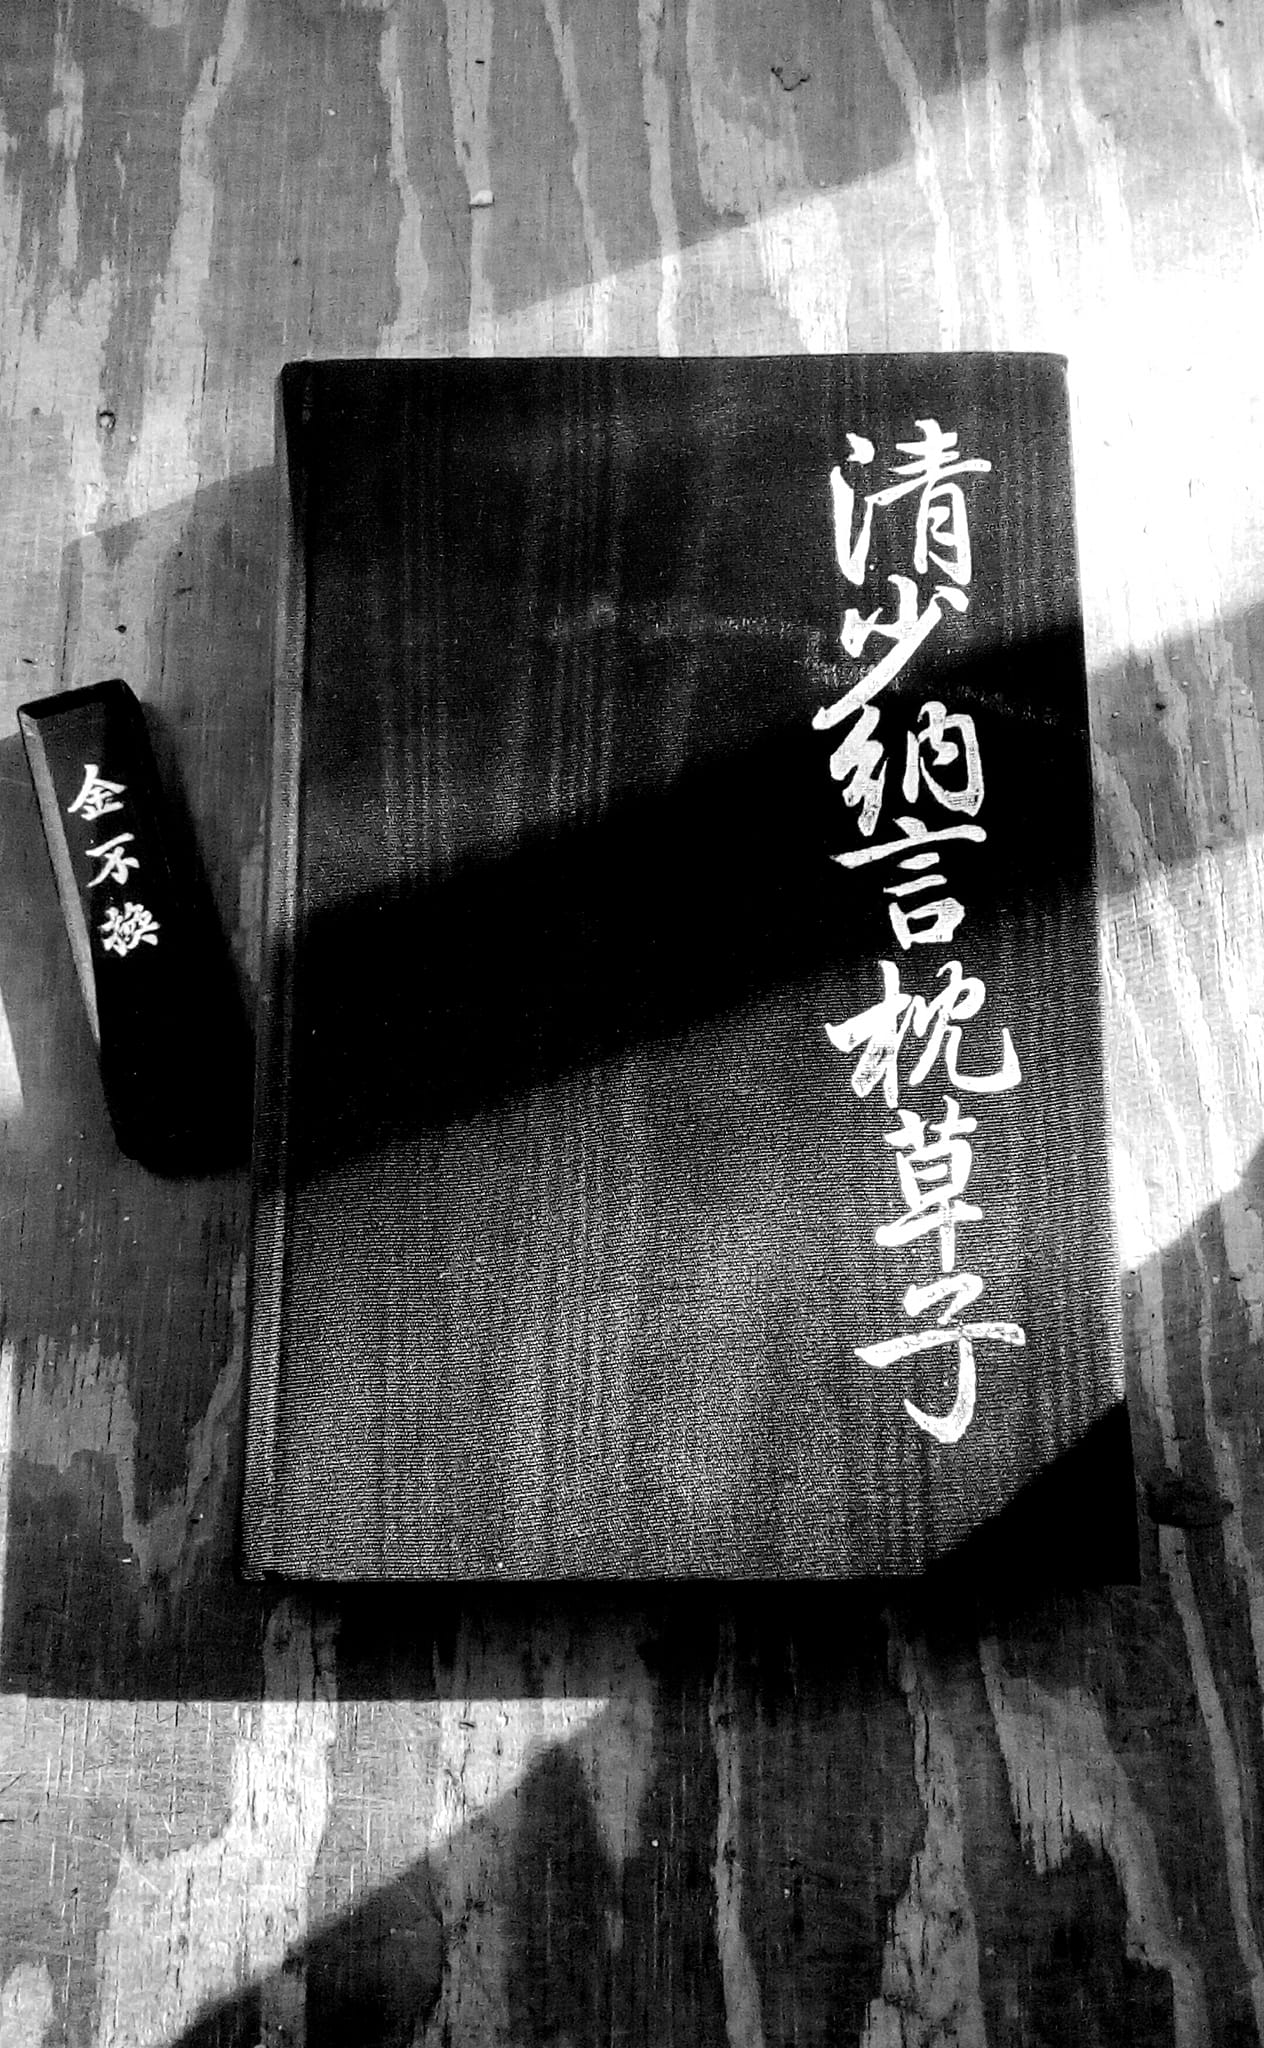 清少納言枕草子
金不換